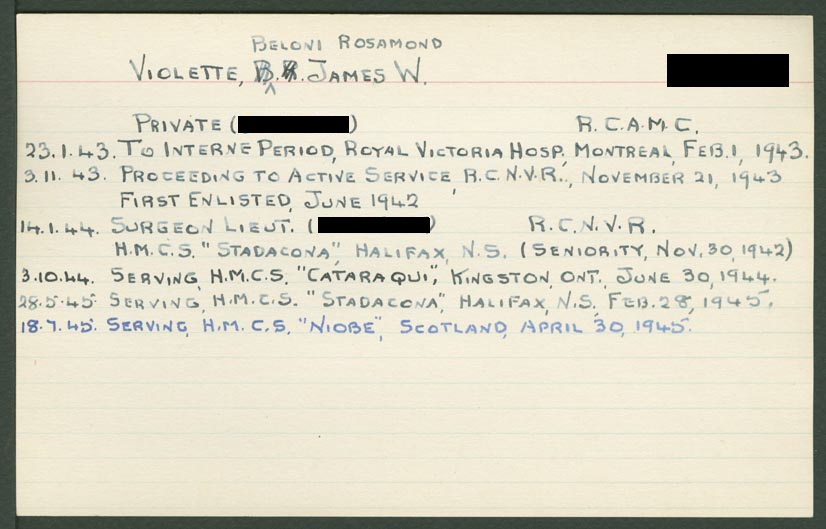 BELONI ROSAMOND
VIOLETTE, B. R. JAMES W.
PRIVATE ( ) R.C.A.M.C.
23.1.43. TO INTERNE PERIOD, ROYAL VICTORIA HOSP., MONTREAL, FEB.1, 1943.
3.11.43. PROCEEDING TO ACTIVE SERVICE, R.C.N.V.R., NOVEMBER 21, 1943
FIRST ENLISTED, JUNE 1942
14.1.44. SURGEON LIEUT. ( ) R.C.N.V.R.
H.M.C.S. "STADACONA", HALIFAX, N.S. (SENIORITY, NOV.30, 1942)
3.10.44. SERVING, H.M.C.S. "CATARAQUI", KINGSTON, ONT., JUNE 30, 1944.
28.5.45. SERVING, H.M.C.S. "STADACONA", HALIFAX, N.S., FEB.28, 1945.
18.7.45. SERVING, H.M.C.S. "NIOBE", SCOTLAND, APRIL 30, 1945.